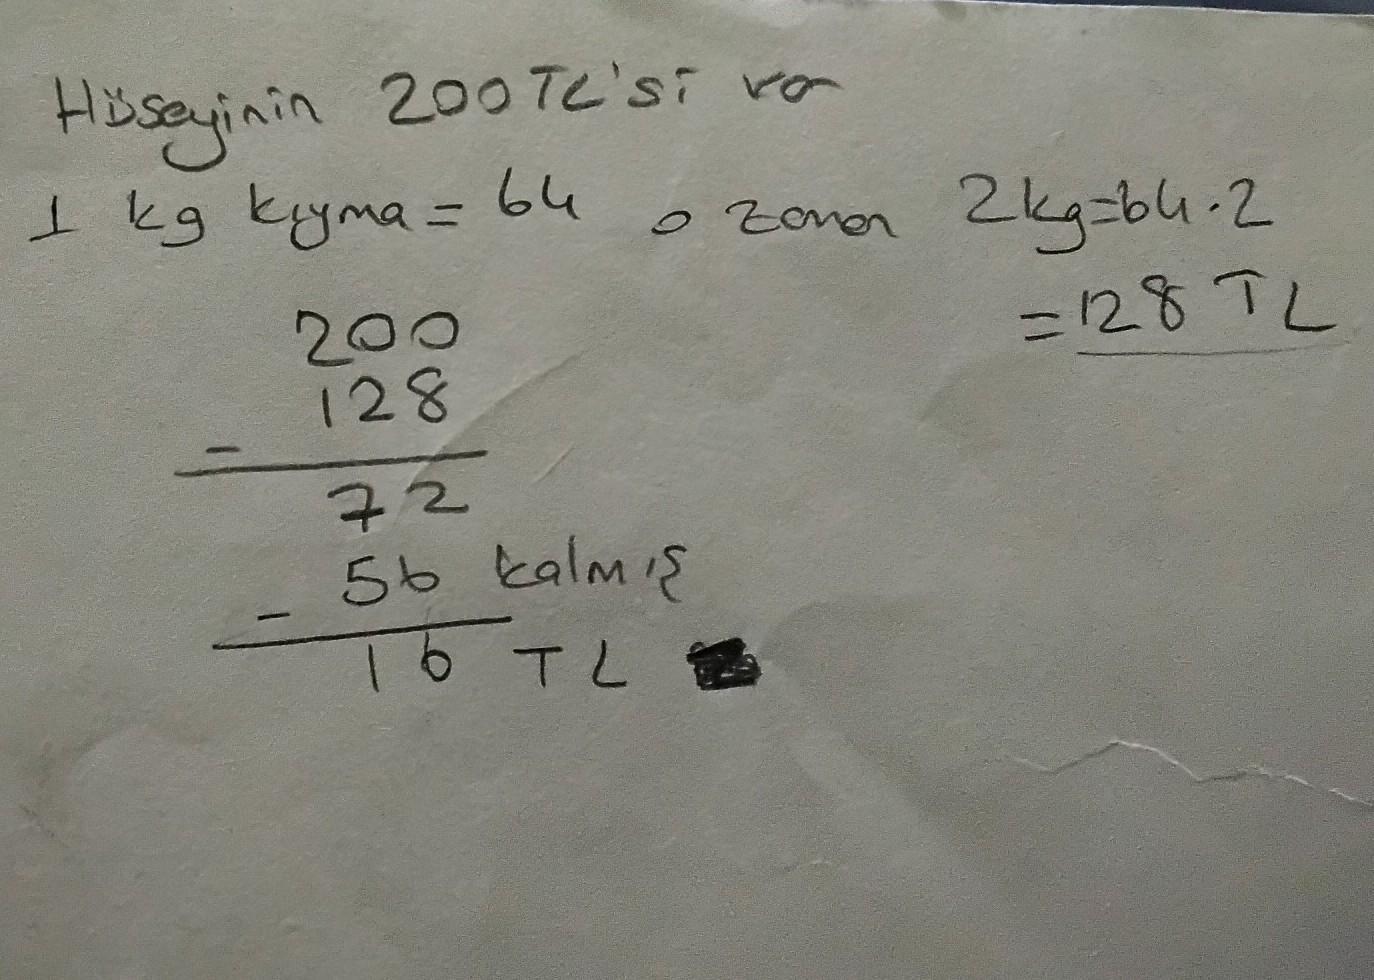 Hüseyinin 200TL'si var
1 kg kıyma = 64 o zaman 2kg=64.2
= 128 TL
200
128
-
72
56 kalmış
-
16 TL